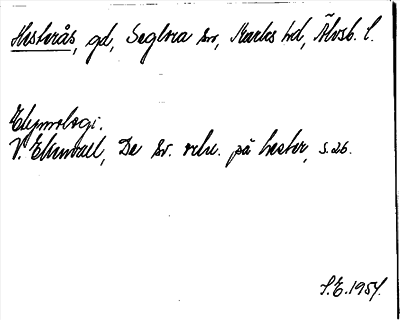 Hesterås, gd, Seglora sn, Marks hd, Älvsb. l.
Etymologi.
V. Ekenvall, De sv. ortn. på hester, s. 26.
S.E. 1954.